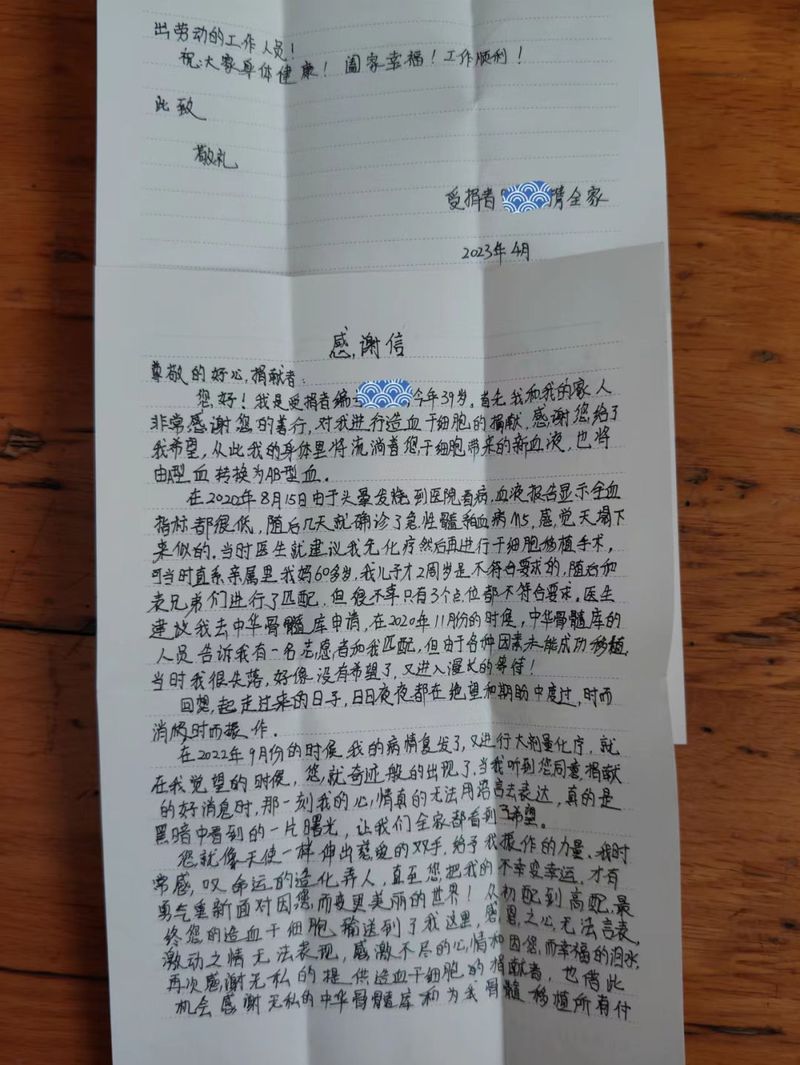 出劳动的工作人员！
祝：大家身体健康！阖家幸福！工作顺利！
此致
敬礼
受捐者 倩全家
2023年4月
感谢信
尊敬的好心捐献者：
您好！我是受捐者编 今年39岁。首先我和我的家人
非常感谢您的善行，对我进行造血干细胞的捐献，感谢您给了
我希望，从此我的身体里将流淌着您干细胞带来的新血液，也将
由A型血转换为AB型血。
在2020年8月15日由于头晕发烧到医院看病，血液报告显示全血
指标都很低，随后几天就确诊了急性髓系白血病M5，感觉天塌下
来似的。当时医生就建议我先化疗然后再进行干细胞移植手术，
可当时直系亲属里我妈60多岁，我儿子才2周岁是不符合要求的，随后和
表兄弟们进行了匹配，但很不幸只有3个点位都不符合要求。医生
建议我去中华骨髓库申请，在2020年11月份的时候，中华骨髓库的
人员告诉我有一名志愿者和我匹配，但由于各种因素未能成功移植，
当时我很失落，好像没有希望了，又进入漫长的等待！
回想起走过来的日子，日日夜夜都在绝望和期盼中度过，时而
消极时而振作。
在2022年9月份的时候我的病情复发了，又进行大剂量化疗，就
在我觉望的时候，您就奇迹般的出现了，当我听到您同意捐献
的好消息时，那一刻我的心情真的无法用语言去表达，真的是
黑暗中看到的一片曙光，让我们全家都看到了希望。
您就像天使一样伸出慈爱的双手，给予我振作的力量、我时
常感叹命运的造化弄人，直至您把我的不幸变幸运，才有
勇气重新面对因您而变更美丽的世界！从初配到高配，最
终您的造血干细胞输送到了我这里，感恩之心无法言表，
激动之情无法表现，感激不尽的心情和因您而幸福的泪水，
再次感谢无私的提供造血干细胞的捐献者，也借此
机会感谢无私的中华骨髓库和为我骨髓移植所有付